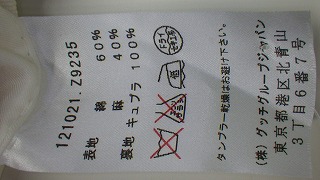 121021.Z9235
表地 綿 60%
麻 40%
裏地 キュプラ 100%
ドライ
低
タンブラー乾燥はお避け下さい。
(株) グッチグループジャパン
東京都港区北青山
3丁目6番7号